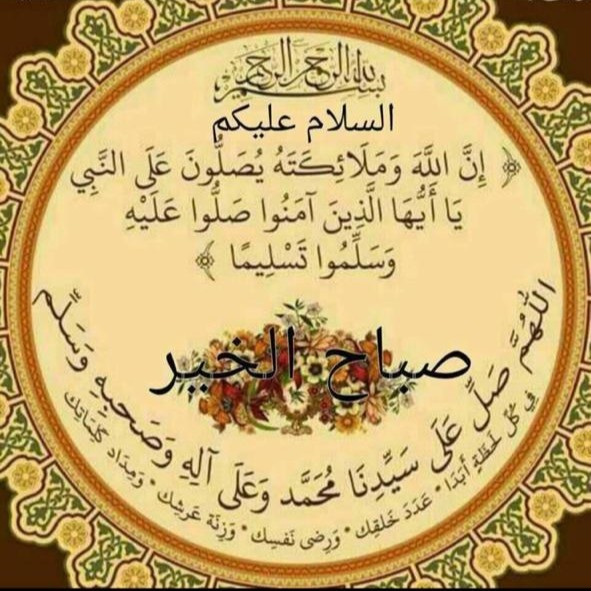 بسم الله الرحمن الرحيم
السلام عليكم
﴿ إِنَّ اللَّهَ وَمَلَائِكَتَهُ يُصَلُّونَ عَلَى النَّبِي
يَا أَيُّهَا الَّذِينَ آمَنُوا صَلُّوا عَلَيْهِ
وَسَلِّمُوا تَسْلِيمًا ﴾
صباح الخير
اللَّهُمَّ صَلِّ عَلَى سَيِّدِنَا مُحَمَّد وَعَلَى آلِهِ وَصَحْبِهِ وَسَلَّم
فِي كُلِّ لَحْظَةٍ أَبَدًا * عَدَدَ خَلقِك * وَرِضى نَفسِك * وَزِنَة عَرشِك * وَمِدَاد كَلِمَاتِك